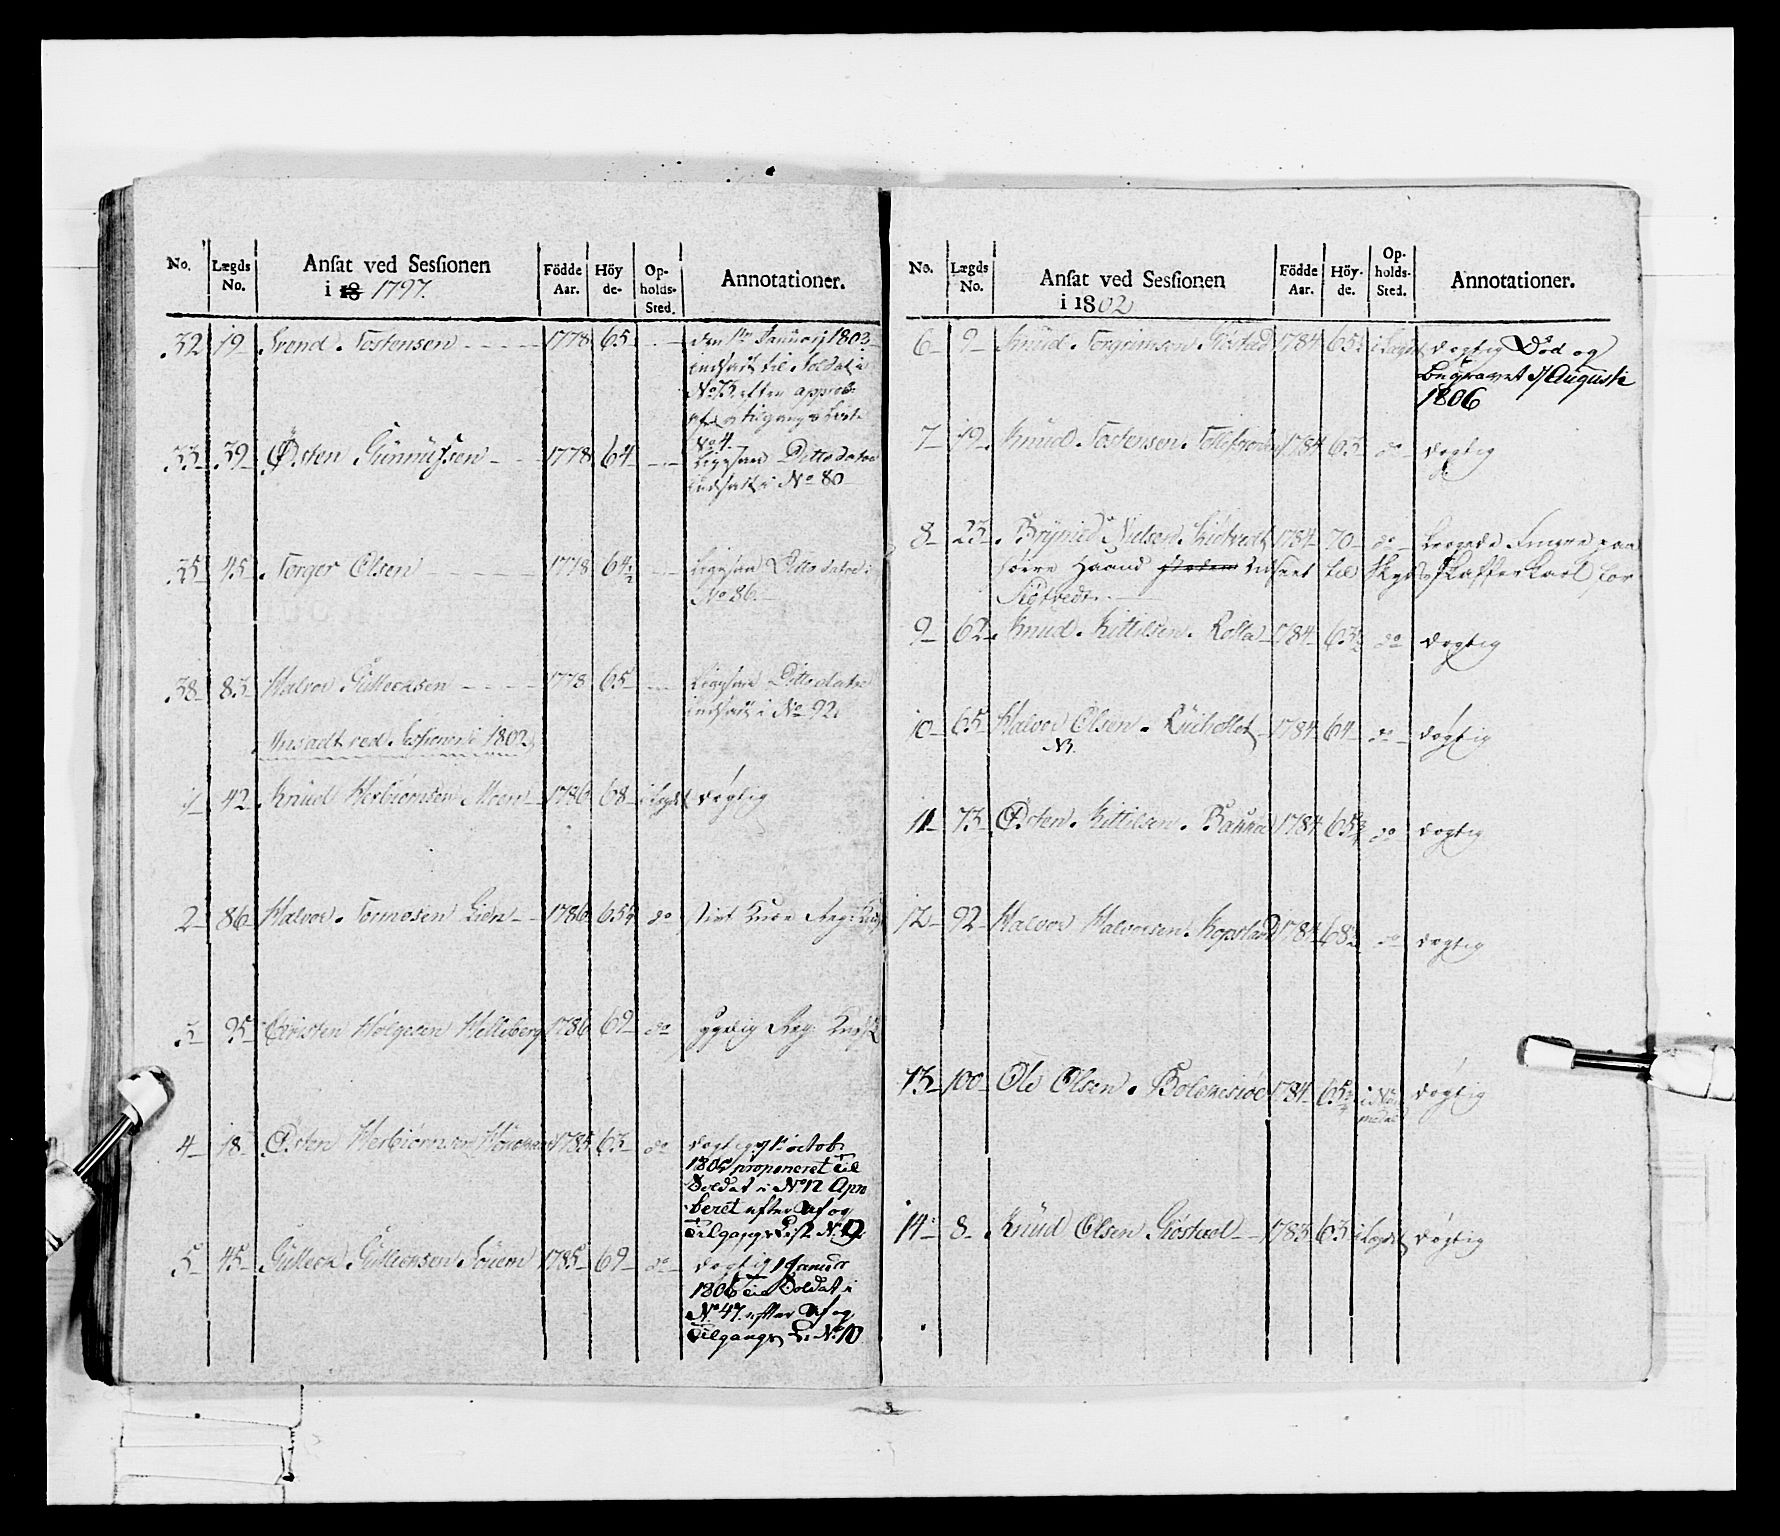 No. Lægds No. Ansat ved Sessionen i 18 1797. Födde Aar. Höy de. Op-holds-Sted. Annotationer.
32 19 Svend Tostensen 1778 65 den 1te Januarij 1803
indsatt til Soldat i
No 73 efter approb:
Af og tilgangs Liste
No 4
33 39 Østen Gunnulfsen 1778 64 Ligesaa Ditto datoe
indsatt i No 80
35 45 Torger Olsen 1778 64½ Ligesaa Ditto datoe i
No 86.
38 83 Halvor Gulleichsen 1778 65 Ligesaa Ditto datoe
indsatt i No 92.
Ansadt ved Sessionen i 1802
1 42 Knud Herbiørnsen Moen 1786 68 i Legdet døgtig
2 86 Halvor Tormosen Lien 1786 65½ do
3 95 Christen Holgesen Helliberg 1786 69 do
4 18 Østen Herbiørnsen 1785 63 do døgtig 1 octob
1805 proponeret til
Soldat i No 12 Apro
beret efter Af og
Tilgangs List No 9
5 45 Gulleck Gulleicksen Louen 1785 69 do døgtig 1 Januar
1806 til Soldat i
No 47 efter Af og
Tilgangs Li No 10
No. Lægds No. Ansat ved Sessionen i 1802 Födde Aar. Höy-de. Op-holds-Sted. Annotationer.
6 9 Knud Torgrimsen Giøstad 1784 65½ i Legdet døgtig Død og
begravet 7 Augusti
1806
7 19 Knud Tostensen 1784 63 do døgtig
8 23 Brynild Nielsen Kiøtvedt 1784 70 do
høire Haand til Skydsskaffer Karl for
Kiøtvedt
9 62 Knud Kittilsen Rolla 1784 63½ do døgtig
10 65 Halvor Olsen 1784 64 do døgtig
11 73 Østen Kittilsen Bakka 1784 65¾ do døgtig
12 92 Halvor Halvorsen Kopsland 1784 68½ do døgtig
13 100 Ole Olsen Bolkesiøe 1784 65¾ i Nu
medal døgtig
14 8 Knud Olsen Giøstad 1783 63 i Legdet døgtig